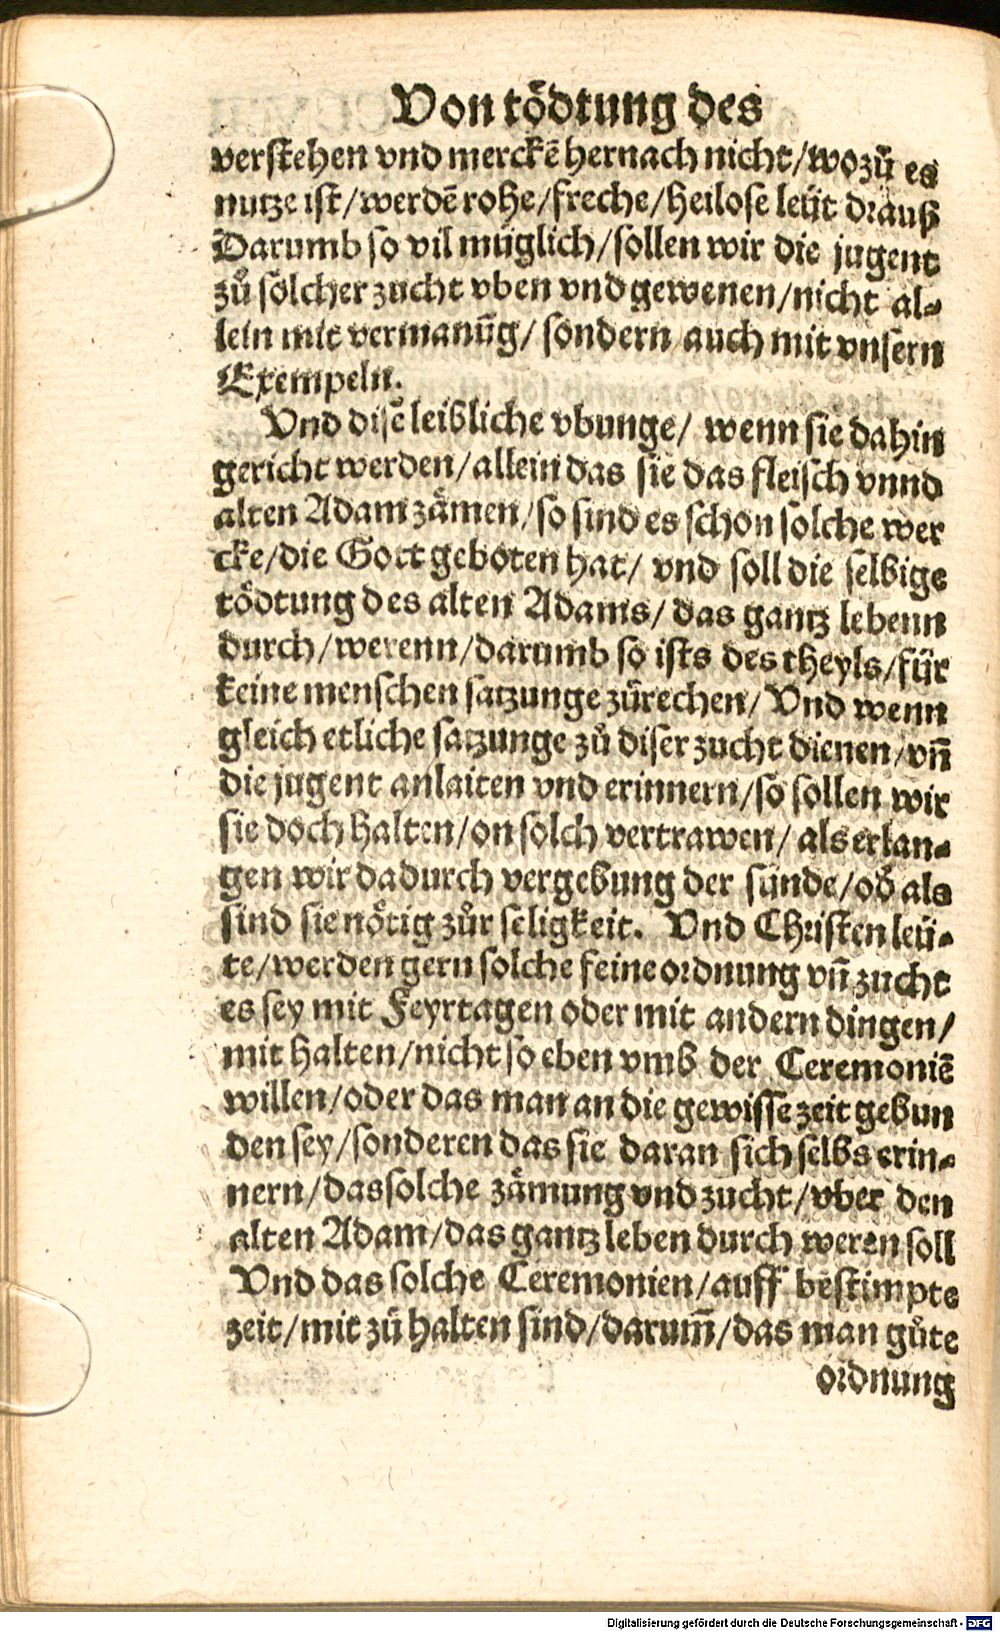 Von tödtung des
verstehen vnd merckē hernach nicht/wozů es
nutze ist/werdē rohe/freche/heilose leüt drauß
Darumb so vil müglich/sollen wir die jugent
zů sölcher zucht vben vnd gewenen/nicht al-
lein mit vermanūg/ sondern auch mit vnsern
Exempeln.
Vnd disē leibliche vbunge/ wenn sie dahin
gericht werden/allein das sie das fleisch vnnd
alten Adam zämen/so sind es schon solche wer
cke/die Gott geboten hat/ vnd soll die selbige
tödtung des alten Adams/ das gantz lebenn
durch/werenn/darumb so ists des theyls/für
keine menschen satzunge zůrechen/ Vnd wenn
gleich etliche satzunge zů diser zucht dienen/vn̄
die jugent anlaiten vnd erinnern/so sollen wir
sie doch halten/on solch vertrawen/ als erlan-
gen wir dadurch vergebung der sünde/ob als
sind sie nötig zůr seligkeit. Vnd Christen leü-
te/werden gern solche feine ordnung vn̄ zucht
es sey mit Feyrtagen oder mit andern dingen/
mit halten/nicht so eben vmb der Ceremoniē
willen/oder das man an die gewisse zeit gebun
den sey/sonderen das sie daran sich selbs erin-
nern/das solche zämung vnd zucht/vber den
alten Adam/das gantz leben durch weren soll
Vnd das solche Ceremonien/auff bestimpte
zeit/mit zů halten sind/darum̄/das man gůte
ordnung
Digitalisierung gefördert durch die Deutsche Forschungsgemeinschaft - DFG